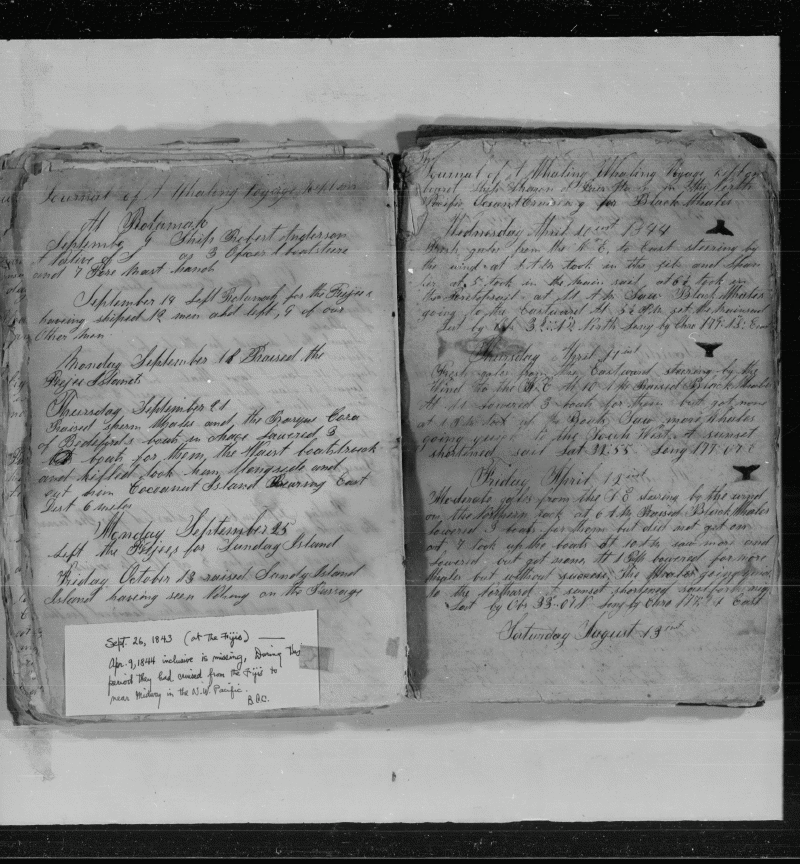 Journal of A Whaling Voyage Kept on
At Rotumah
September 9 Ship Robert
A Native of 3 Officer 1 boatsteerer
and 7 Fore Mast hands
September 14 Left Rotumah for the Fejees
having shiped 12 men and left 9 of our
Other Men
Monday September 18 Raised the
Fejees Islands
Thursday September 21
Raised sperm Whales and the Barque Cora
of Bideford boats in chase lowered 3
boats for them, the Waist boat struck
and killed took him alongside and
cut him Cocoanut Island Bearing East
Dist 6 miles
Monday September 25
Left the Fejees for Sunday Island
Friday October 13 raised Sunday Island
Island having seen Nothing on the Passage
Sept. 26, 1843 (at the Fijis) —
Apr. 9, 1844 inclusive is missing, During this
period they had cruised from the Fijis to
near Midway in the N.W. Pacific.
Journal of A Whaling Whaling Voyage Kept on
board Ship in the North
Pacific Ocean Cruising for Black Whales
Wednesday April 10 inst 1844
Fresh gales from the N E, to East steering by
the wind at took in the jib and
at 5 took in the main sail, at 6 took in
the foretopsail at A M Saw Black Whales
going to the Eastward At set the mainsail
Lat by Ob North Long by Chro East
Thursday April 11 inst
Fresh gales from the Eastward steering by the
Wind to the At 10 A M Raised Black Whales
At 11 lowered 3 boats for them but got none
at took up the Boats Saw more Whales
going quick to the South West at sunset
shortened sail Lat 31..55 Long 177..07 E
Friday April 12 inst
Moderate gales from the S E steering by the wind
on the Northern tack at 6 A M Raised Black Whales
lowered 3 boats for them but did not get one
at 7 took up the boats At 10 A M saw more and
lowered but got none, At 1 PM lowered for more
Whales but without success, The Whales going quick
to the at sunset shortened sail
Lat by Ob 33..07 N Long by Chro East
Saturday August 13 inst